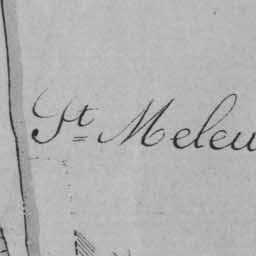 St Meleu